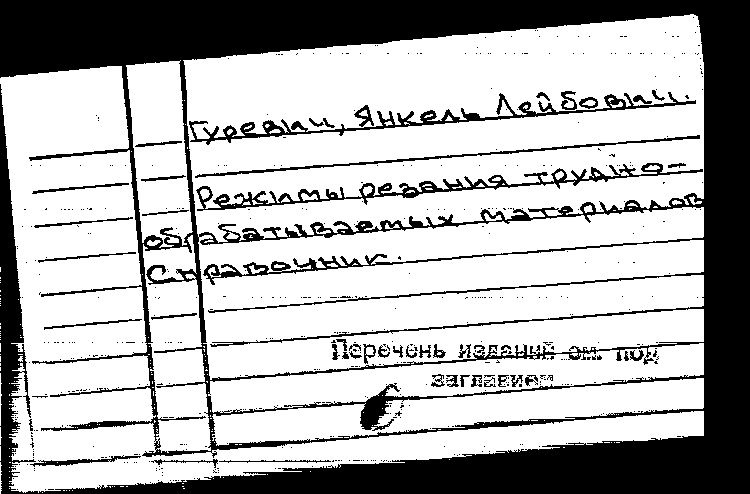 Гуревич, Янкель Лейбович.
Режимы резания трудно-
обрабатываемых материалов
Справочник.
Перечень изданий см. под
заглавием